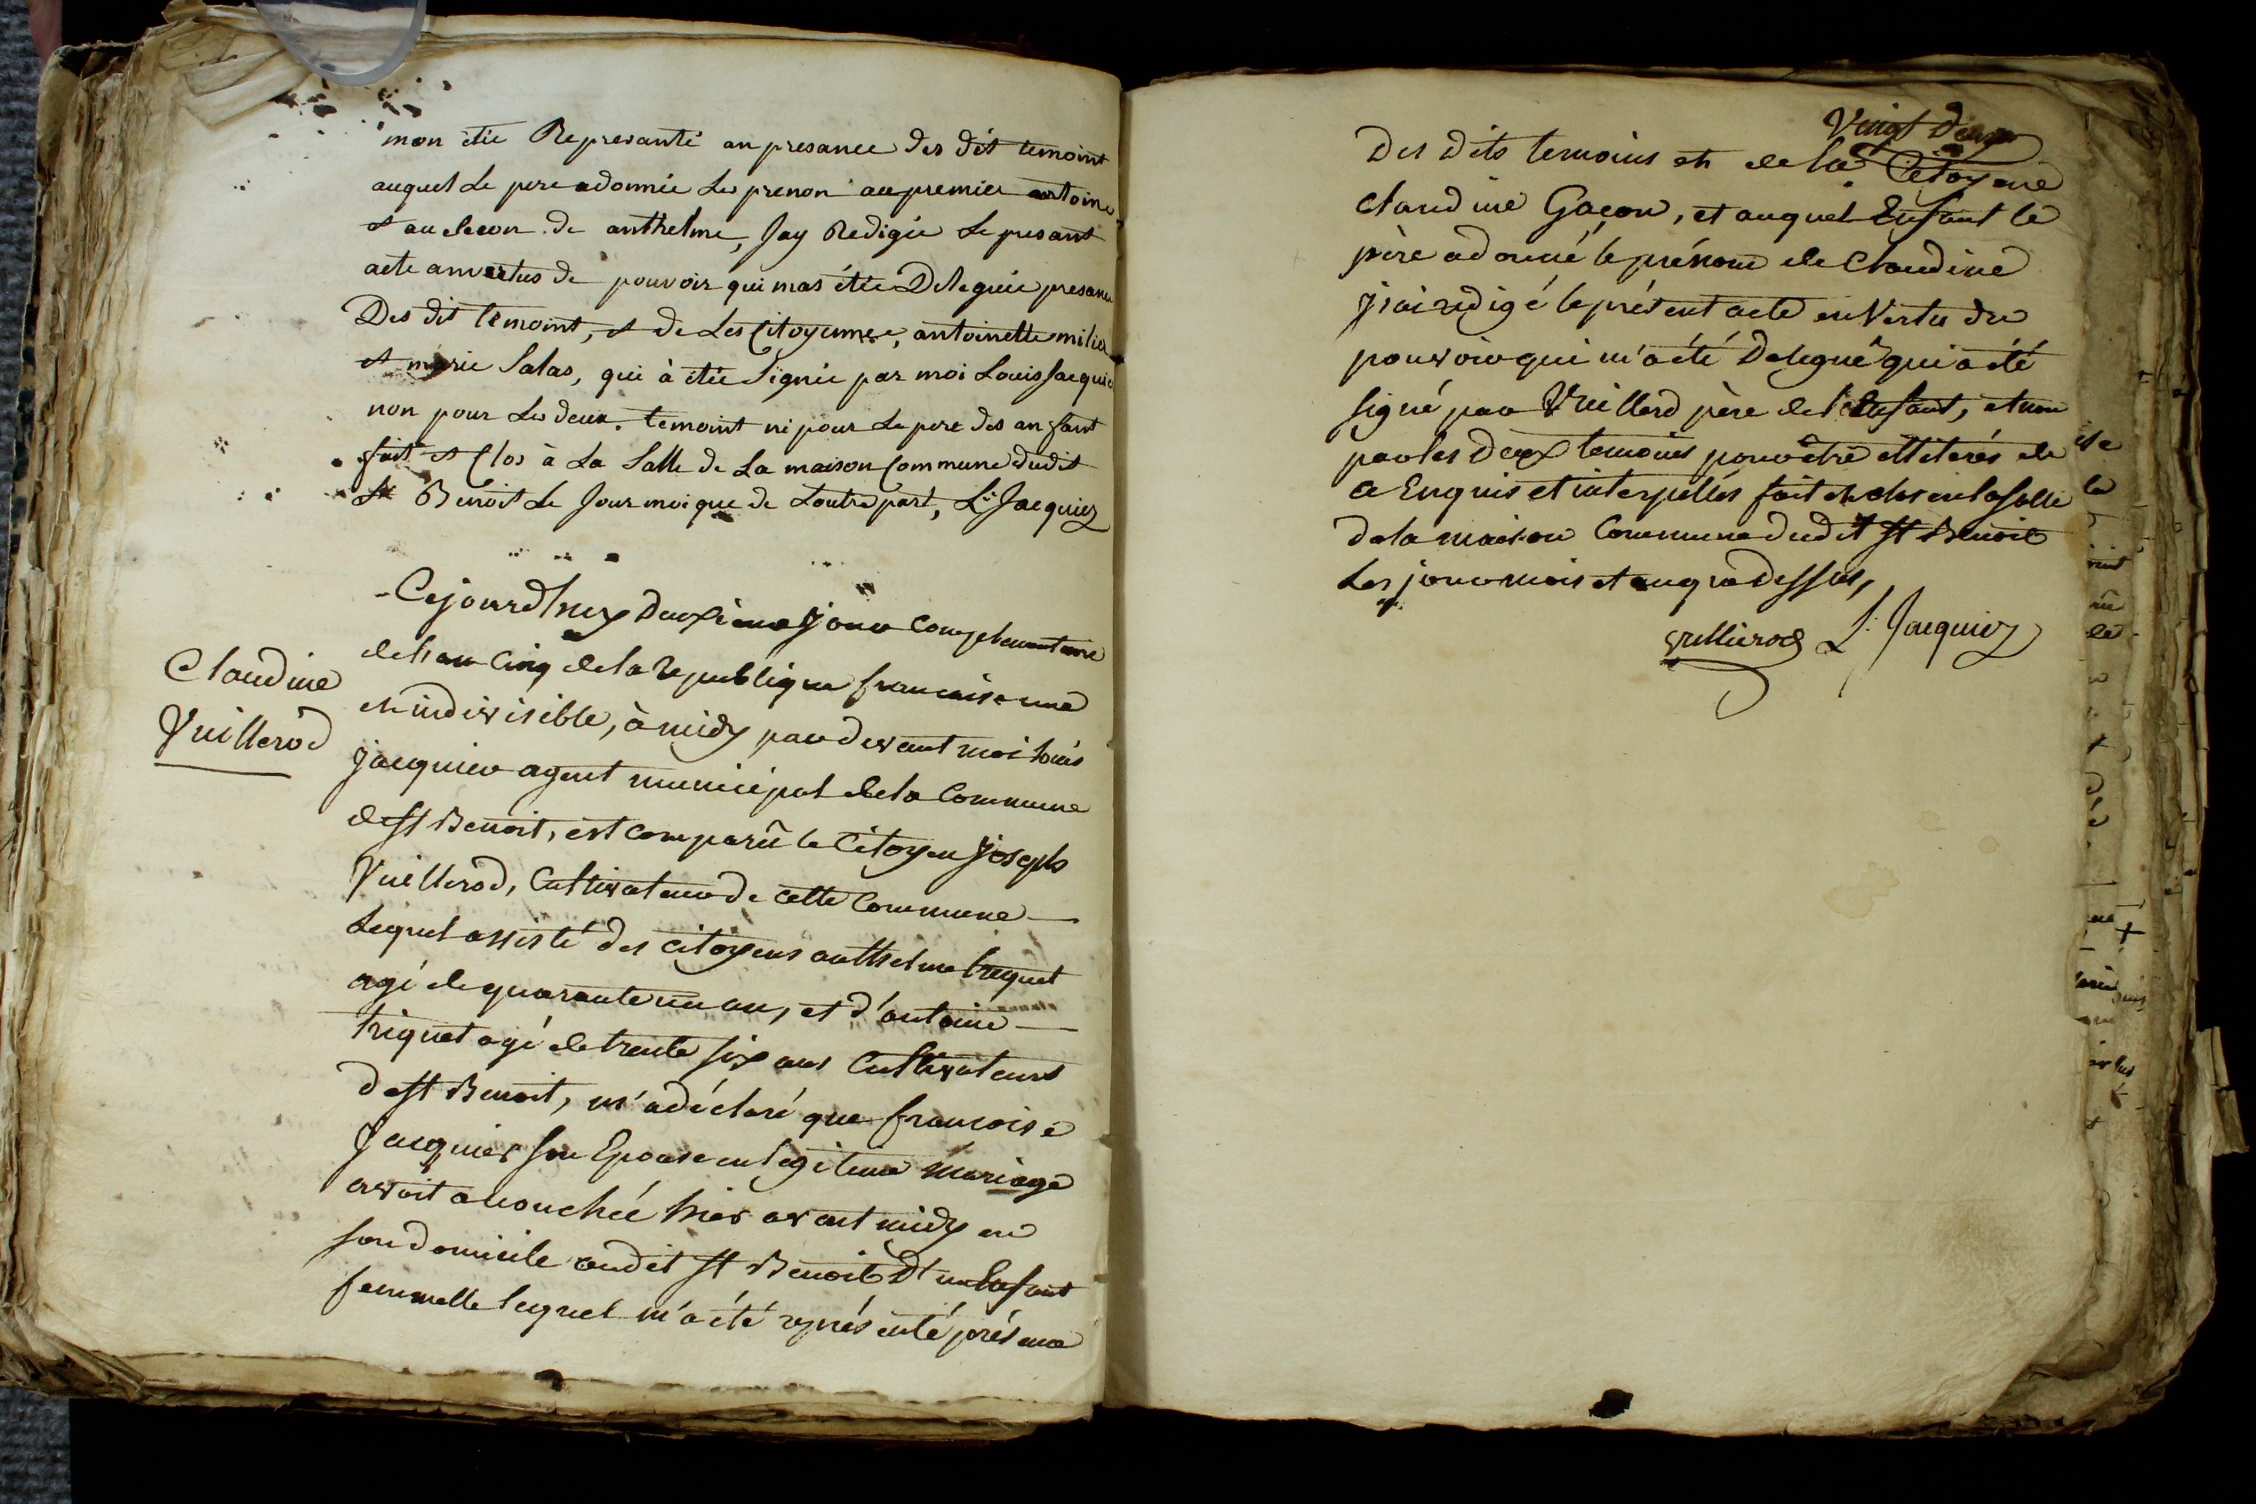 mon étée Represanté an presance des dit temoint
auquel Le pere adonnée Les prenon au premier antoine
et au Secon de anthelme, Jay Redigée Le presant
acte anvertus de pouvoir qui mas étée Deleguée presance
Des dit temoint, et de Les Citoyenne, antoinette milier
et marie Salas, qui à étée Signée par moi Louis Jacquier
non pour Les deux temoint ni pour Le pere des anfant
fait et Clos à La Salle de La maison Commune dudit
St Benoit Le Jour moi que de Loutre part, Ls Jacquier
Claudine
Vuillerod
Cejourdhuy Deuxième Jour Complementaire
de l'an Cinq de la Republique francaise une
et indivisible, à midy par devant moi Louis
Jacquier agent municipal de la Commune
de St Benoit, est comparû le Citoyen Joseph
Vuillerod, Cultivateur de cette Commune
Lequel assisté des citoyens anthelme triquet
agé de quarante un an, et d'antoine
triquet agé de trente six ans Cultivateurs
de St Benoit, m'a déclaré que francoise
Jacquier son Epouse en legitime mariage
avoit accouchée hier avant midy en
son domicile audit St Benoit D'un Enfant
femmelle lequel m'a été représenté présence
Vingt Deux
Des Dits temoins et de la Citoyenne
Claudine Gaçon, et auquel Enfant le
père a donné le prénom de Claudine
J'ai redigé le présent acte en Vertu du
pouvoir qui m'a été Delegué qui a été
signé par Vuillerod père de l'Enfant, et non
par les Deux temoins pour être illiterés de
ce Enquis et interpellés fait et clos en la salle
de la maison Commune dudit St Benoit
Les jour mois et an que Dessus,
vullierod L. Jacquier